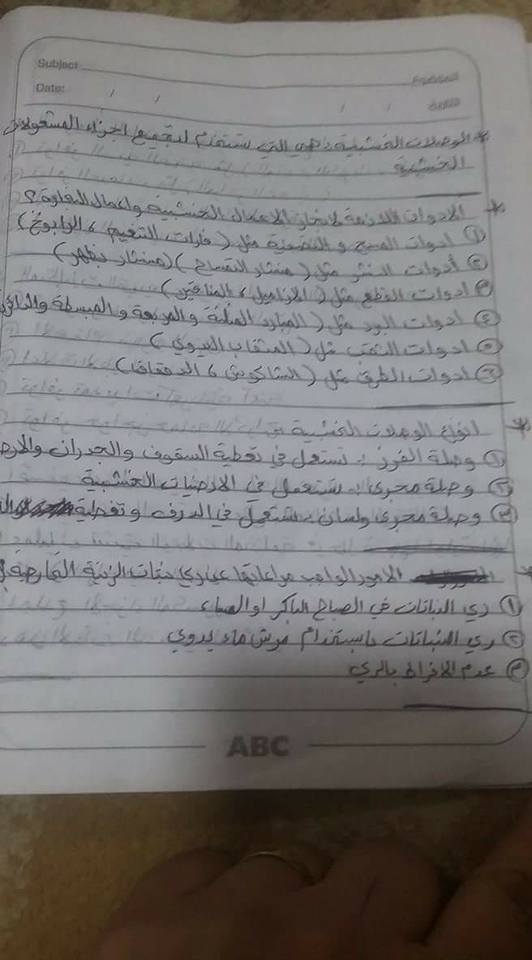 Subject
الموضوع
Date: / /
/ / التاريخ
* الوصلات الخشبية : هي التي تستخدم لتجميع اجزاء المشغولات
الخشبية
* الادوات اللازمة لانجاز الاعمال الخشبية واعمال النجارة ؟
① ادوات المسح و التسوية مثل ( فارات التنعيم ، الرابوخ )
② أدوات النشر مثل ( منشار التمساح ) ( منشار بظهر )
③ ادوات القطع مثل ( الازاميل ،
④ ادوات البرد مثل ( المبارد المثلثة و المربعة و المبسطة
⑤ ادوات الثقب مثل ( المثقاب اليدوي )
⑥ ادوات الطرق مثل ( الشاكوش ، الدقماق )
* انواع الوصلات الخشبية
① وصلة الفرز : تستعمل في تغطية السقوف والجدران
② وصلة مجرى : تستعمل في الارضيات الخشبية
③ وصلة مجرى ولسان : تستعمل في الدرف و تغطية
* الامور الواجب مراعاتها عند ري نباتات الزينة الخارجية
① ري النباتات في الصباح الباكر او المساء
② ري النباتات باستخدام مرش ماء يدوي
③ عدم الافراط بالري
ABC